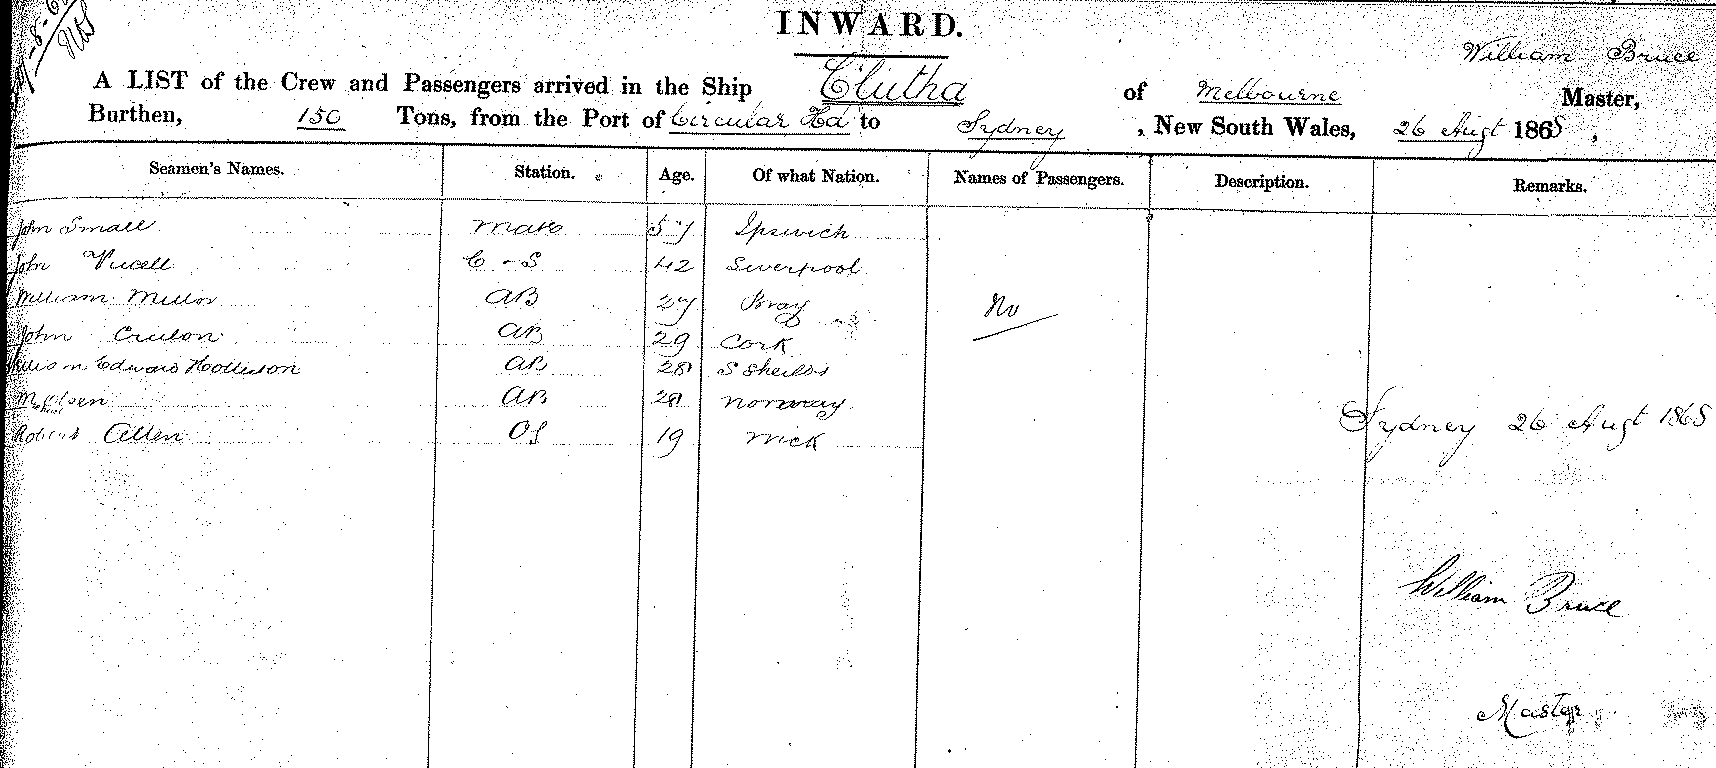 INWARD.
William Bruce
A LIST of the Crew and Passengers arrived in the Ship Clutha of Melbourne Master,
Burthen, 150 Tons, from the Port of Circular Hd to Sydney, New South Wales, 26 Augt 1868,
Seamen's Names. Station. Age. Of what Nation. Names of Passengers. Description. Remarks.
John Small Mate 57 Ipswich
John C-S 42 Liverpool
William Miller AB 27 Bray No
John AB 29 Cork
Edward AB 28 S Sheilds
Olsen AB 28 Norway
Robert Allen OS 19 Wick
Sydney 26 Augt 1868
William Bruce
Master